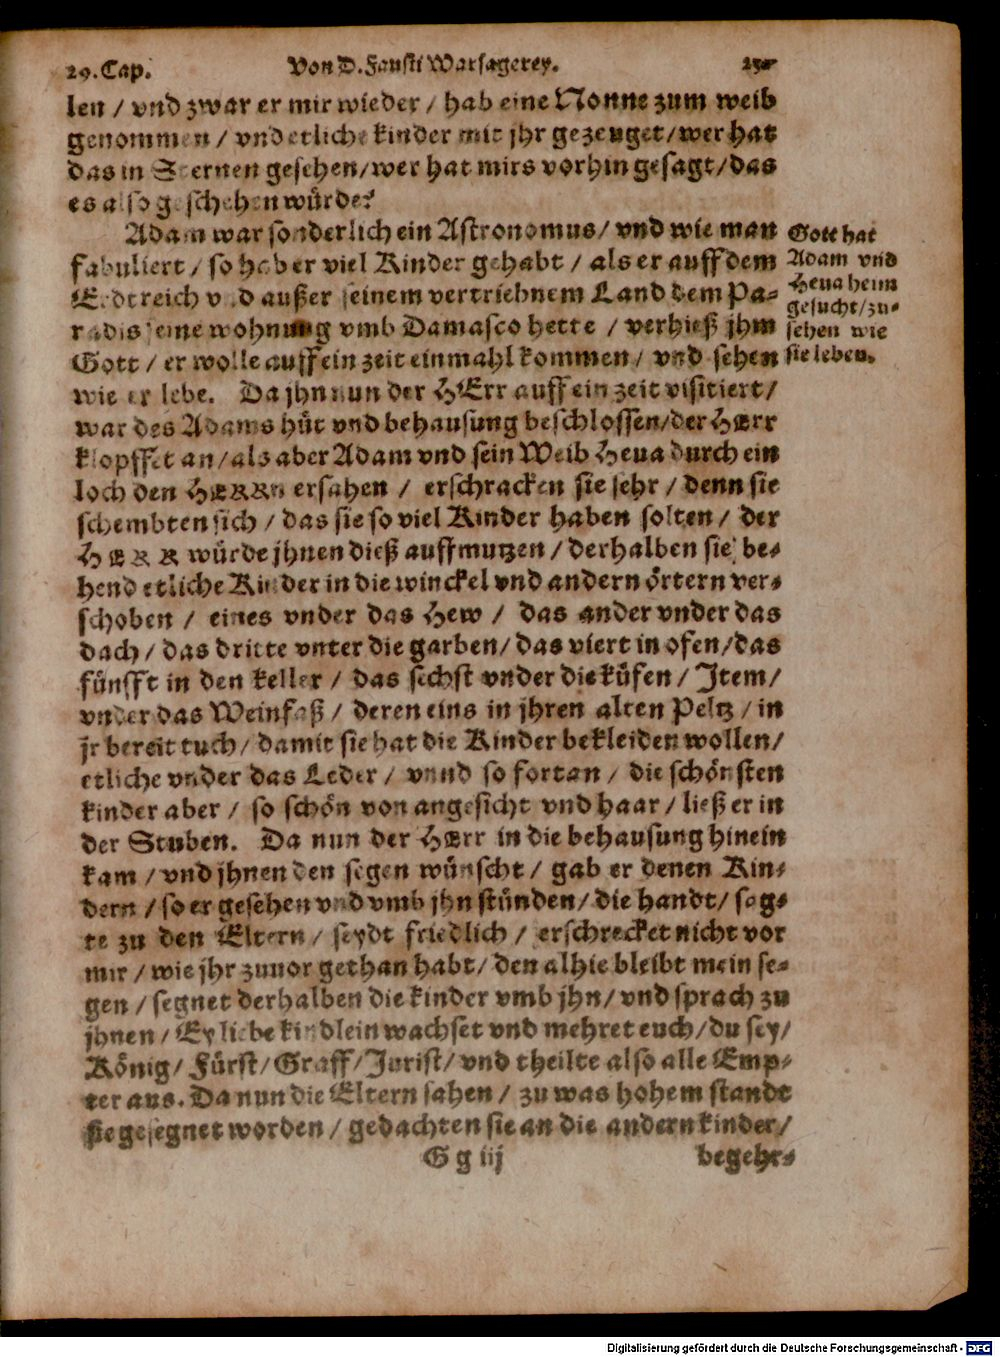 29. Cap. Von D. Fausti Warsagerey.
len / vnd zwar er mir wieder / hab eine Nonne zum weib
genommen / vnd etliche kinder mit jhr gezeuget / wer hat
das in Sternen gesehen / wer hat mirs vorhin gesagt / das
es also geschehen würde?
Adam war sonderlich ein Astronomus / vnd wie man
fabuliert / so hab er viel Kinder gehabt / als er auff dem
Erdtreich vnd außer seinem vertriebnem Land dem Pa-
radis seine wohnung vmb Damasco hette / verhieß jhm
Gott / er wolle auff ein zeit einmahl kommen / vnd sehen
wie er lebe. Da jhn nun der HErr auff ein zeit visitiert /
war des Adams hüt vnd behausung beschlossen / der HErr
klopffet an / als aber Adam vnd sein Weib Heua durch ein
loch den HERRn ersahen / erschracken sie sehr / denn sie
schembten sich / das sie so viel Kinder haben solten / der
HERR würde jhnen dieß auffmutzen / derhalben sie be-
hend etliche Kinder in die winckel vnd andern örtern ver-
schoben / eines vnder das Hew / das ander vnder das
dach / das dritte vnter die garben / das viert in ofen / das
fünfft in den keller / das sechst vnder die küfen / Item /
vnder das Weinfaß / deren eins in jhren alten Peltz / in
jr bereit tuch / damit sie hat die Kinder bekleiden wollen /
etliche vnder das Leder / vnnd so fortan / die schönsten
kinder aber / so schön von angesicht vnd haar / ließ er in
der Stuben. Da nun der HErr in die behausung hinein
kam / vnd jhnen den segen wünscht / gab er denen Kin-
dern / so er gesehen vnd vmb jhn stünden / die handt / sag-
te zu den Eltern / seydt friedlich / erschrecket nicht vor
mir / wie jhr zuuor gethan habt / den alhie bleibt mein se-
gen / segnet derhalben die kinder vmb jhn / vnd sprach zu
jhnen / Ey liebe kindlein wachset vnd mehret euch / du sey /
König / Fürst / Graff / Jurist / vnd theilte also alle Emp-
ter aus. Da nun die Eltern sahen / zu was hohem standt
sie gesegnet worden / gedachten sie an die andern kinder /
G g iij begehr-
Gott hat
Adam vnd
Heua heim
gesucht / zu-
sehen wie
sie leben.
Digitalisierung gefördert durch die Deutsche Forschungsgemeinschaft - DFG